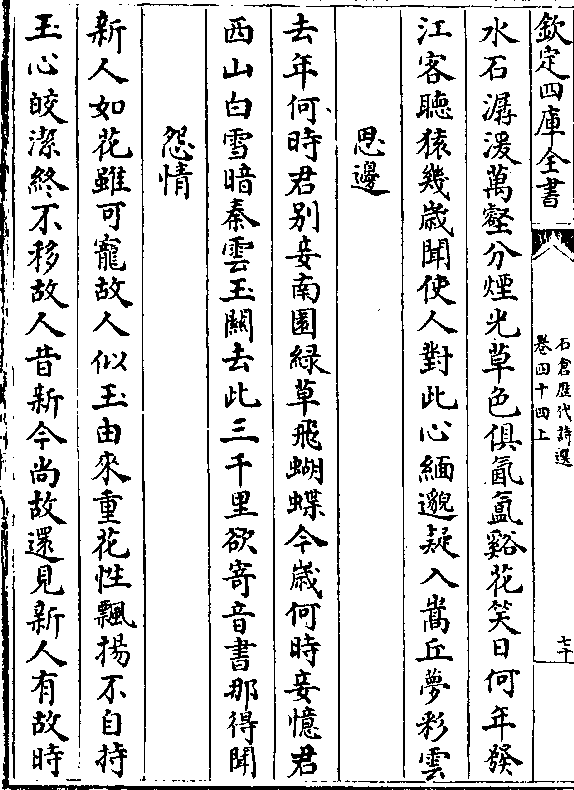 欽定四庫全書
石倉歷代詩選
卷四十四上
七十
水石潺湲萬壑分煙光草色俱氤氳谿花笑日何年發
江客聽猿幾歲聞使人對此心緬邈疑入嵩丘夢彩雲
思邊
去年何時君别妾南園緑草飛蝴蝶今歲何時妾憶君
西山白雪暗秦雲玉關去此三千里欲寄音書那得聞
怨情
新人如花雖可寵故人似玉由來重花性飄揚不自持
玉心皎潔終不移故人昔新今尚故還見新人有故時